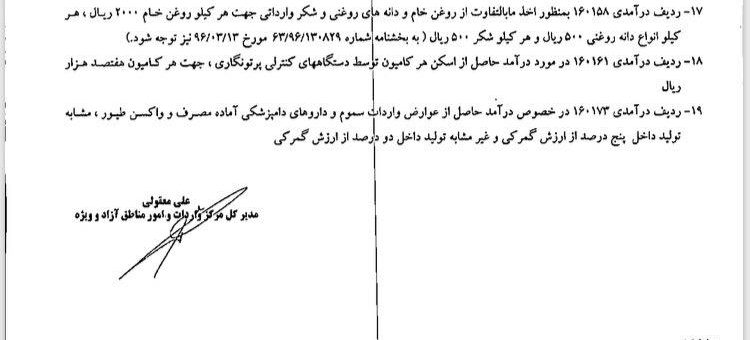 ۱۷- ردیف درآمدی ۱۶۰۱۵۸ بمنظور اخذ مابالتفاوت از روغن خام و دانه های روغنی و شکر وارداتی جهت هر کیلو روغن خام ۲۰۰۰ ریال ، هر
کیلو انواع دانه روغنی ۵۰۰ ریال و هر کیلو شکر ۵۰۰ ریال ( به بخشنامه شماره ۶۳/۹۶/۱۳۰۸۲۹ مورخ ۹۶/۰۳/۱۳ نیز توجه شود.)
۱۸- ردیف درآمدی ۱۶۰۱۶۱ در مورد درآمد حاصل از اسکن هر کامیون توسط دستگاههای کنترلی پرتونگاری ، جهت هر کامیون هفتصد هزار
ریال
۱۹- ردیف درآمدی ۱۶۰۱۷۳ در خصوص درآمد حاصل از عوارض واردات سموم و داروهای دامپزشکی آماده مصرف و واکسن طیور ، مشابه
تولید داخل پنج درصد از ارزش گمرکی و غیر مشابه تولید داخل دو درصد از ارزش گمرکی
علی معقولی
مدیر کل مرکز واردات و امور مناطق آزاد و ویژه